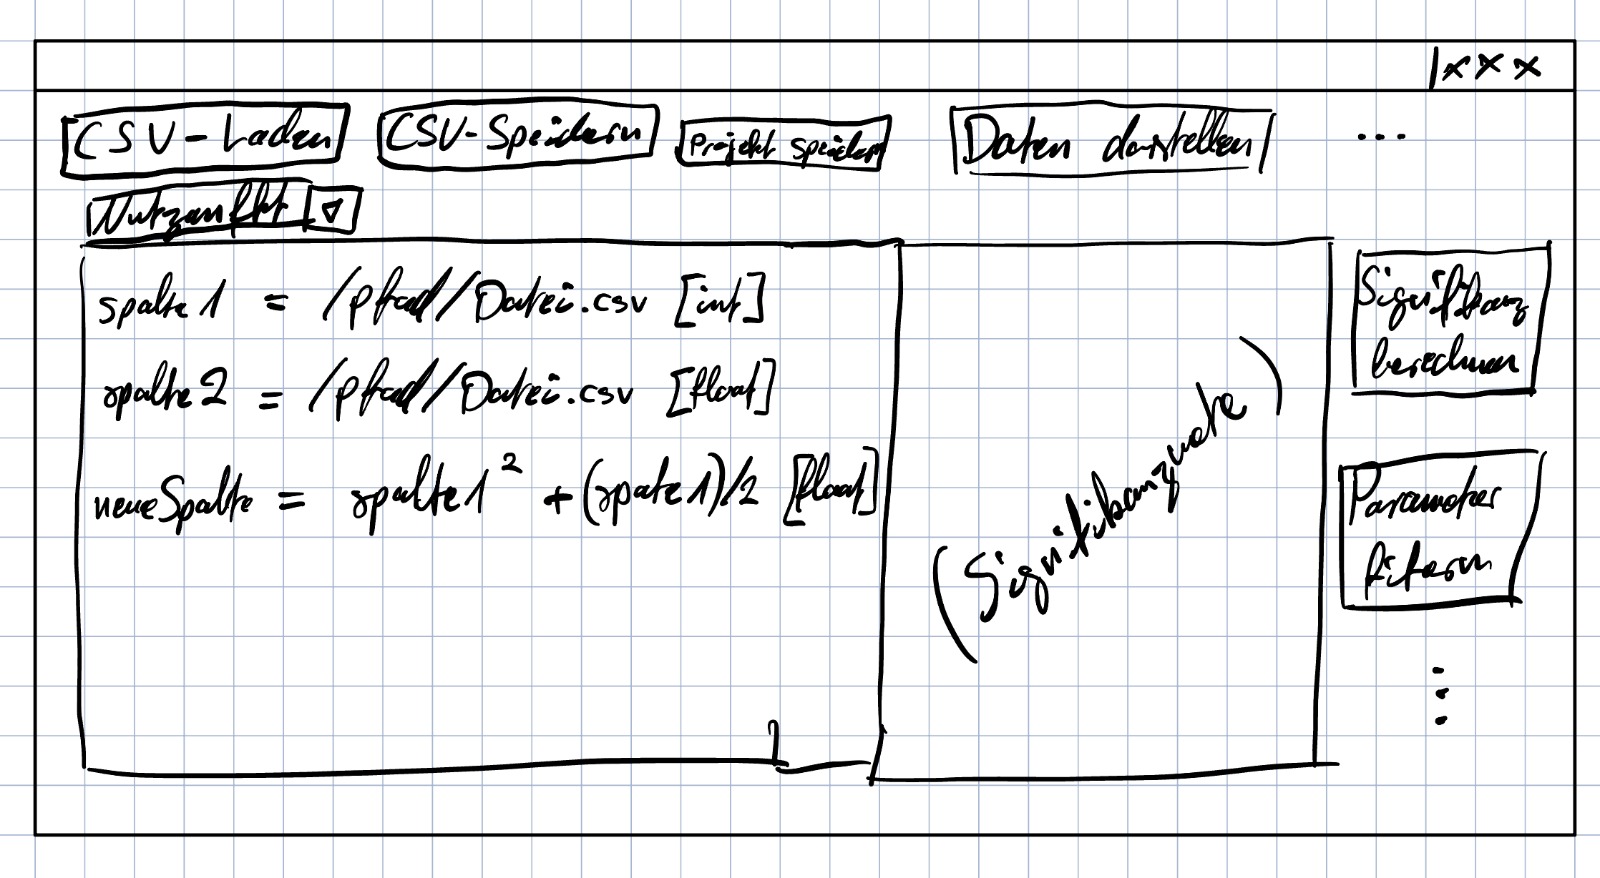 xxx
CSV-Laden
CSV-Speichern
Projekt speichern
Daten darstellen
...
spalte1 = /Pfad/Datei.csv [int]
spalte2 = /Pfad/Datei.csv [float]
neueSpalte = spalte1² + (spate1)/2 [float]
(Signifikanzwerte)
Signifikanz
berechnen
Parameter
filtern